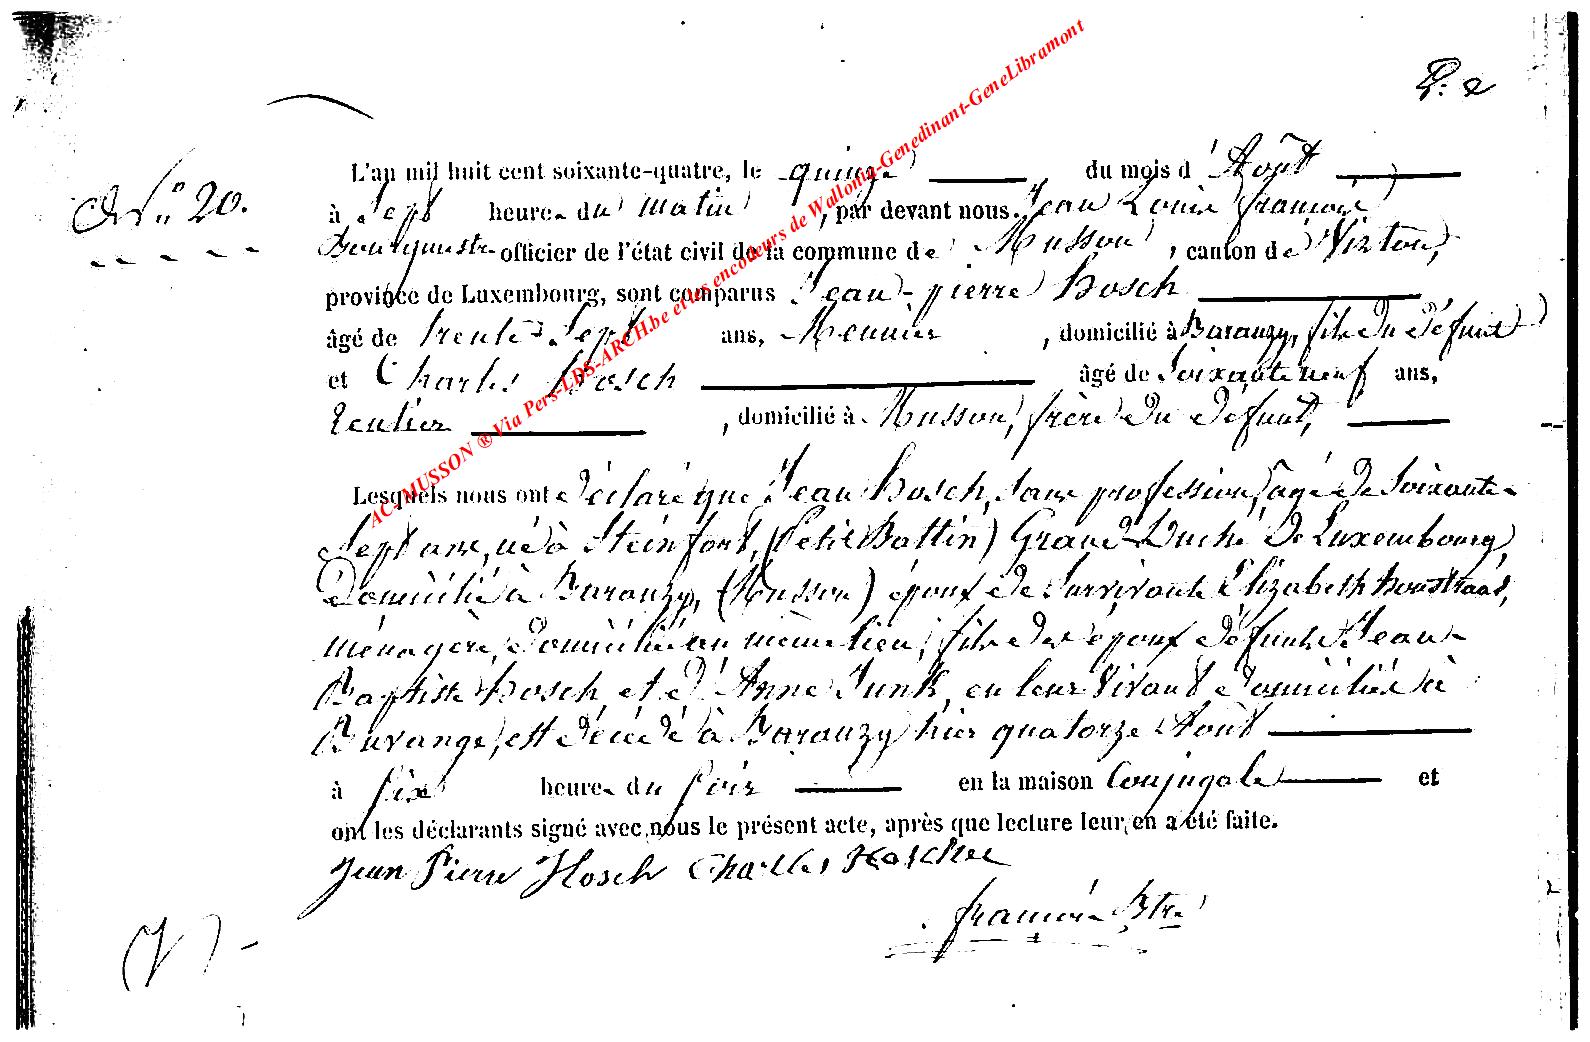 N° 20.
L'an mil huit cent soixante-quatre, le quinze du mois d'Août
à Sept heures du matin, par devant nous Jean Louis françois
Bourgmestre officier de l'état civil de la commune de Musson, canton de Virton,
province de Luxembourg, sont comparus Jean-pierre Hosch
âgé de trente-Sept ans, Meunier, domicilié à Baranzy, fils du défunt
et Charles Hosch âgé de Soixante neuf ans,
Rentier, domicilié à Musson, frère du défunt,
Lesquels nous ont déclaré que Jean Hosch, sans profession, âgé de Soixante-
Sept ans, né à Steinfort, (Petit Battin) Grand-Duché de Luxembourg,
Domicilié à Baranzy, (Musson) époux de Survivante Elizabeth
ménagère, domiciliée au même lieu, fils des époux défunts Jean-
Baptiste Hosch, et d'Anne Junk, en leur vivant domiciliés à
Buvange, est décédé à Baranzy hier quatorze Août
à six heures du soir en la maison Conjugale et
ont les déclarants signé avec nous le présent acte, après que lecture leur en a été faite.
Jean Pierre Hosch Charles
françois Btre
AC-MUSSON ® Via Pers-LDS-ARCH.be et les encodeurs de Wallonia-Genedinant-GeneLibramont